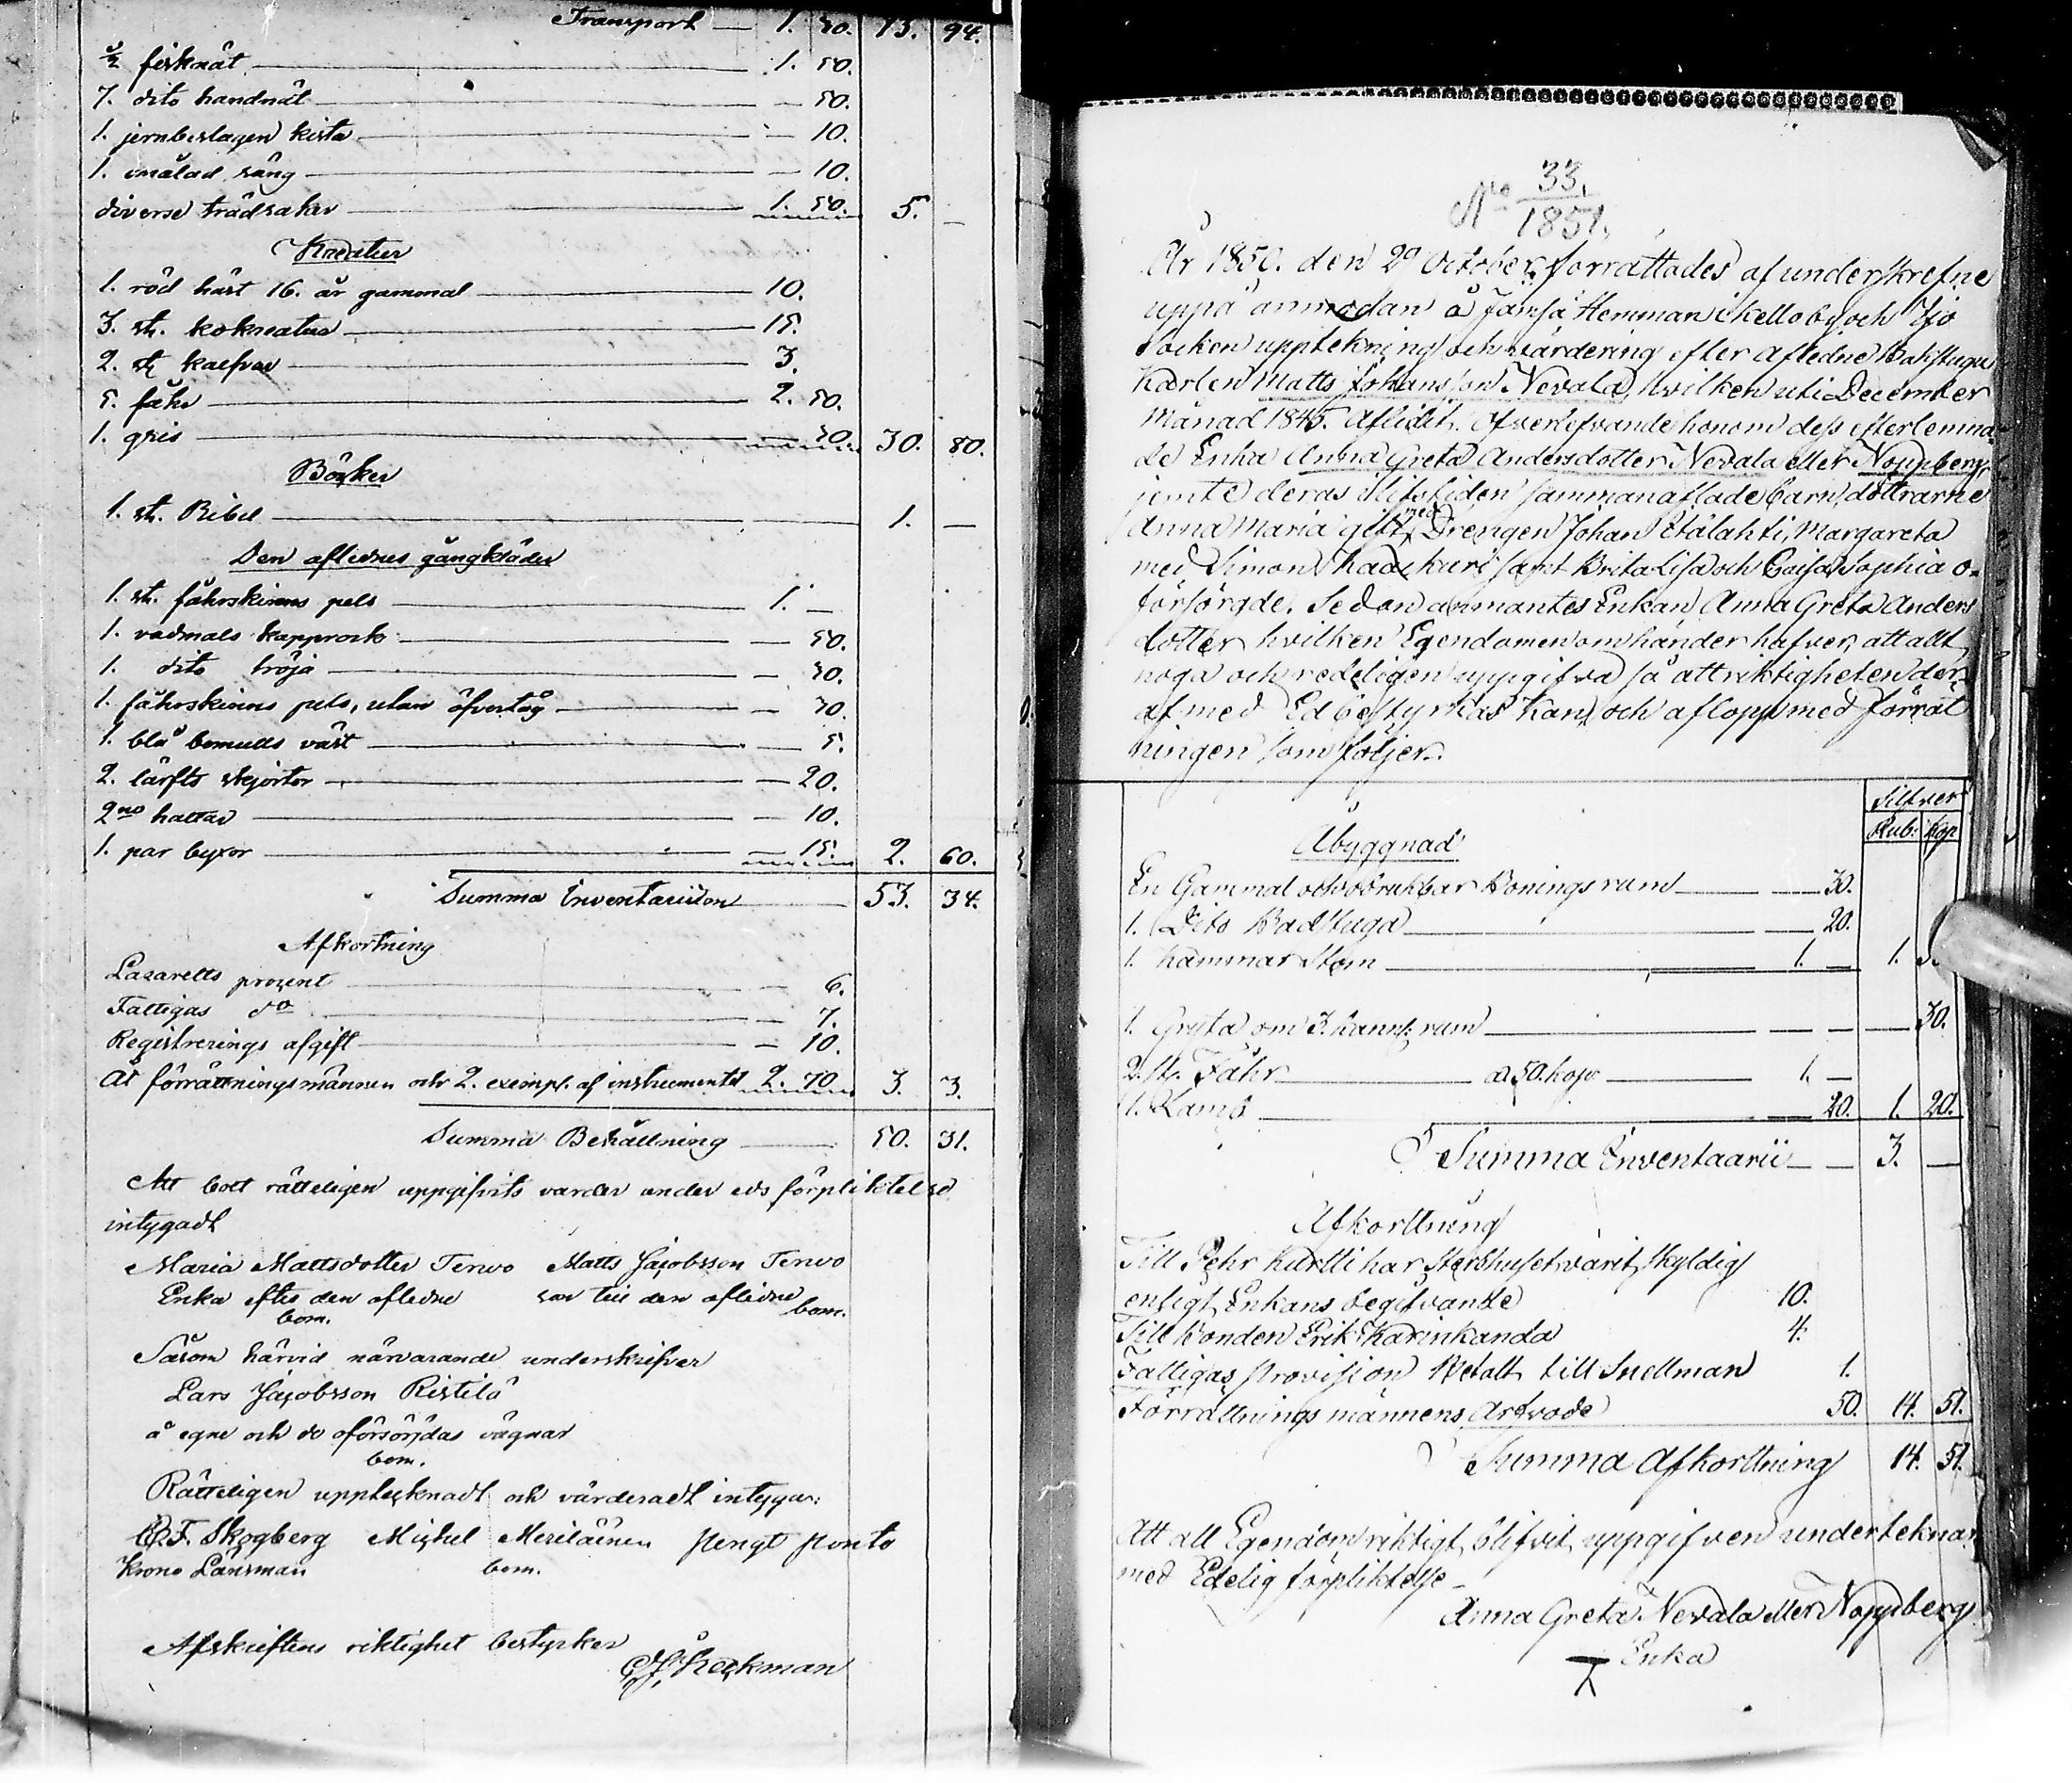 Transport — 1. 30. 13. 94.
½ fisknät — 1. 50.
7. dito handnät — 50.
1. jernbeslagen kista — 10.
1. omålad säng — 10.
diverse trädsaker — 1. 50. 5. —
Kreatur
1. röd häst 16. år gammal — 10.
3. st. kokreatur — 15.
2. st kalfvar — 3.
5. fåhr — 2. 50.
1. gris — 30. 30. 80.
Böcker
1. st. Bibel — 1. —
Den aflidnes gångkläder
1. st. fåhrskinns pels — 1. —
1. vadmals kapprock — 50.
1. dito tröja — 30.
1. fåhrskinns pels, utan öfvertåg — 30.
1. blå bomulls väst — 5.
2. lärfts skjortor — 20.
2ne hattar — 10.
1. par byxor — 15. 2. 60.
Summa Inventariion — 53. 34.
Afkortning
Lazaretts procent — 6.
Fattigas do — 7.
Registrerings afgift — 10.
Åt förrättningsmännen och 2. exempl. af instrumentet 2. 70. 3. 3.
Summa Behållning — 50. 31.
Att boet rätteligen uppgifvits varder under eds förpliktelse
intygadt
Maria Mattsdotter Terwo Matts Jacobsson Terwo
Enka efter den aflidne son till den aflidne
bom. bom.
Såsom härvid närvarande underskrifver
Lars Jacobsson Ristilä
å egne och de oförsörjdas vägnar
bom.
Rätteligen upptecknadt och värderadt intyga:
C.F. Skogberg Michel Meriläinen Pengt Ponto
Krono Länsman bom.
Afskriftens riktighet bestyrker
Heckman
No 33.
1851.
År 1850. den 29 October förrättades af underskrefne
uppå anmodan å Jämsä Hemman i kello by och Ijo
Socken upptekning och värdering efter afledne Bakstugu
Karlen Matts Johansson Nevala, hvilken uti December
Månad 1845. Aflidit. Öfverlefvande honom dess efterlemna-
de Enka Anna Greta Andersdotter Nevala eller Noppberg,
jemte deras i lifstiden sammanaflade barn, döttrarne
Anna Maria gift med Drengen Johan Etälahti, Margareta
med Simon Kaakkuri samt Brita Lisa och Caisa Sophia o-
försörgde. Sedan anmantes Enkan Anna Greta Anders
dotter hvilken Egendomen om händer hafver, att allt
noga och redeligen uppgifva så att riktigheten der-
af med Ed bestyrkas kan, och aflopp med förrät
ningen som följer.
Silfver
Rub: Kop
Åbyggnad
En Gammal och obrukbar Bonings rum — 30.
1. Dito Badstuga — 20.
1. Kammar Stom — 1. — 1.
1. Gryta om 3. kann: rum — 30.
2. st. Fåhr — a 50. kop — 1. —
1. Lamb — 20. 1. 20.
Summa Inventaarii — 3. —
Afkorttning
Till Pehr Kurtti har Sterbhuset varit Skyldig
enligt Enkans begifvande 10.
Till Bonden Erik Karinkanda 4.
Fattigas Provision Betalt till Snellman 1.
Förrättnings männens Arfvode 50. 14. 51.
Summa Afkorttning 14. 51.
Att all Egendom riktigt blifvit uppgifven undertekna
med Edelig förpliktelse
Anna Greta Nevala eller Noppberg
Enka